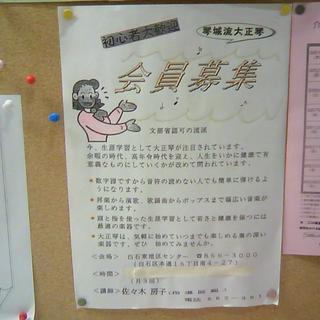 初心者大歓迎
琴城流大正琴
会員募集
文部省認可の流派
今、生涯学習として大正琴が注目されています。
余暇の時代、高年令時代を迎え、人生をいかに健康で有
意義なものにしていくかが改めて問われています。
●数字譜ですから音符の読めない人でも簡単に弾けるよ
うになります。
●邦楽から演歌、歌謡曲からポップスまで幅広い音楽が
楽しめます。
●頭と指を使った生涯学習として若さと健康を保つには
最適の楽器です。
●大正琴は、気軽に始めていつまでも楽しめる奥の深い
楽器です。ぜひ 始めてみませんか。
<会場> 白石東地区センター ☎866-3000
(白石区本通16丁目南4-27)
<時間>
(月3回)
<講師> 佐々木 房子
電話